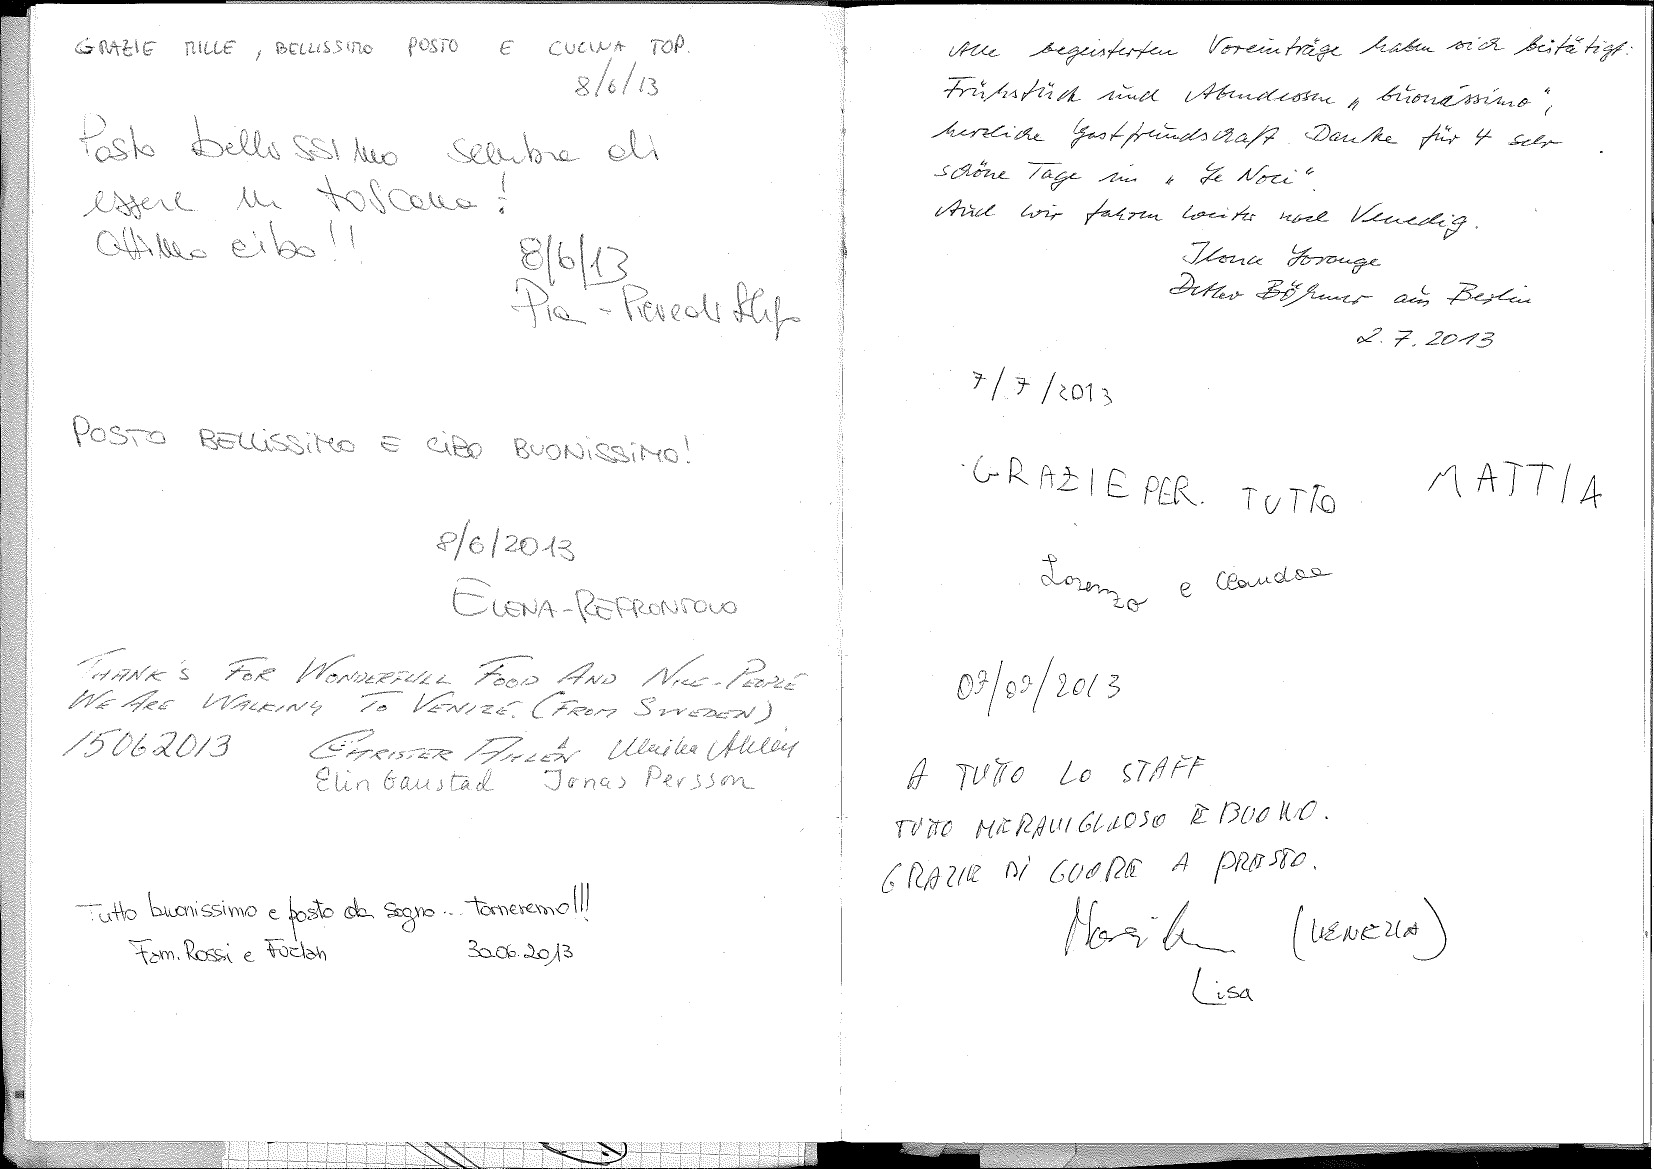 GRAZIE MILLE, BELLISSIMO POSTO E CUCINA TOP.
8/6/13
Posto bellissimo sembra di
essere in toscana!
Ottimo cibo!!
8/6/13
Pia -
POSTO BELLISSIMO E CIBO BUONISSIMO!
8/6/2013
ELENA-REFRONTOLO
THANK'S FOR WONDERFULL FOOD AND NICE-PEOPLE
WE ARE WALKING TO VENIZE. (FROM SWEDEN)
15062013 CHRISTER AHLÉN Ulrika Ahlén
Elin Gaustad Jonas Persson
Tutto buonissimo e posto da sogno... torneremo!!!
Fam. Rossi e
30.06.2013
Alle begeisterten Voreinträge haben sich bestätigt:
Frühstück und Abendessen „buonissimo",
herzliche Gastfreundschaft. Danke für 4 sehr
schöne Tage im „Le Noci".
Auch wir fahren weiter nach Venedig.
Detlev Böhmer aus Berlin
2.7.2013
7/7/2013
GRAZIE PER. TUTTO MATTIA
Lorenzo e
07/07/2013
A TUTTO LO STAFF
TUTTO MERAVIGLIOSO E BUONO.
GRAZIE DI CUORE A PRESTO.
(VENEZIA)
Lisa